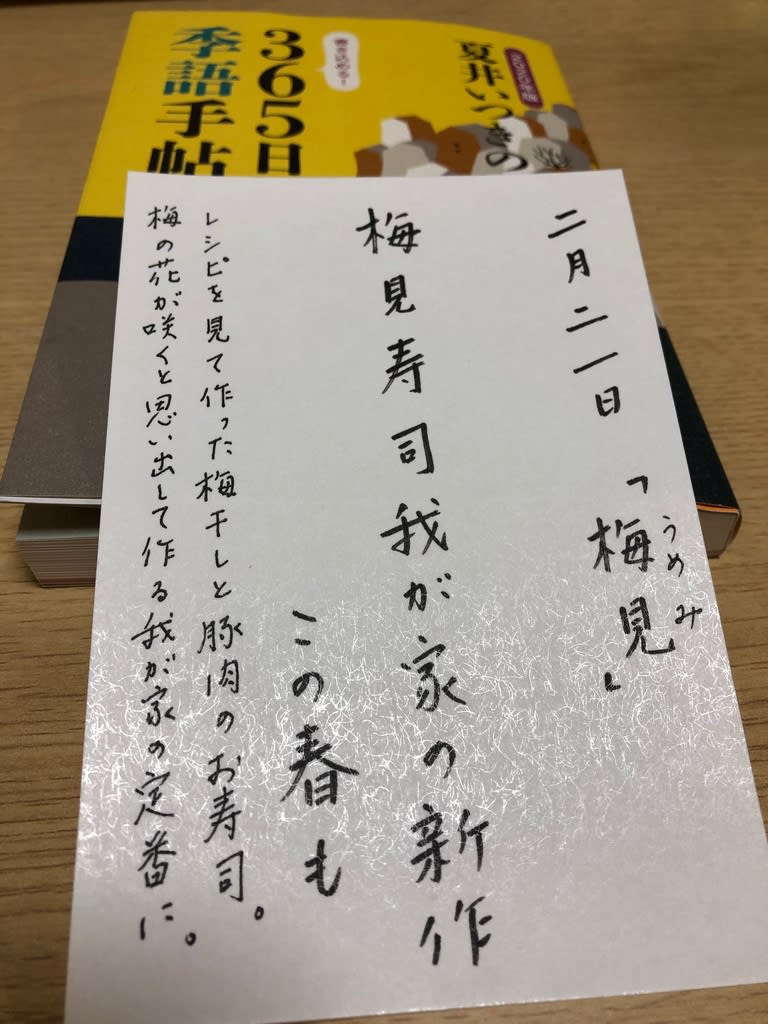 2025年版
夏井いつきの
書き込める！
365日
季語手帖
二月二一日「梅見」
うめみ
梅見寿司我が家の新作
この春も
レシピを見て作った梅干しと豚肉のお寿司。
梅の花が咲くと思い出して作る我が家の定番に。